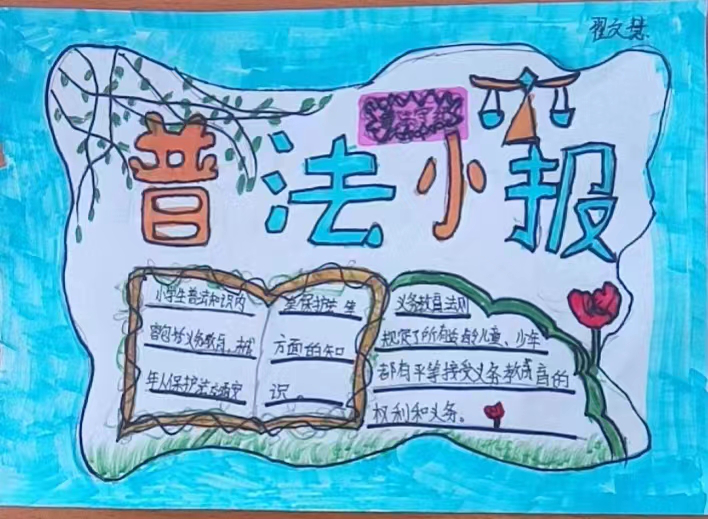 翟文慧
普法小报
小学生普法知识内
容包括义务教育、未成
年人保护法、交通安
全保护法 生
方面的知
识。
义务教育法则
规定了所有适龄儿童、少年
都有平等接受义务教育的
权利和义务。